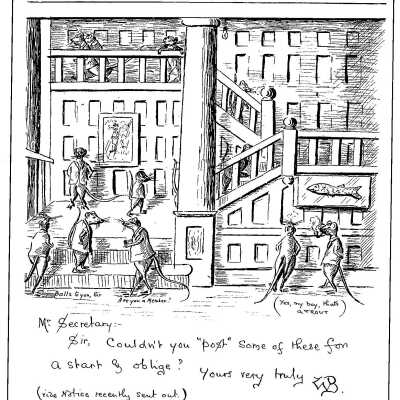 Balls to you, Sir
Are you a Member?
(Yes, my boy, that's
a TROUT)
Mr Secretary:-
Sir, Couldn't you "post" some of these for
a start & oblige? Yours very truly
(vide Notice recently sent out.)